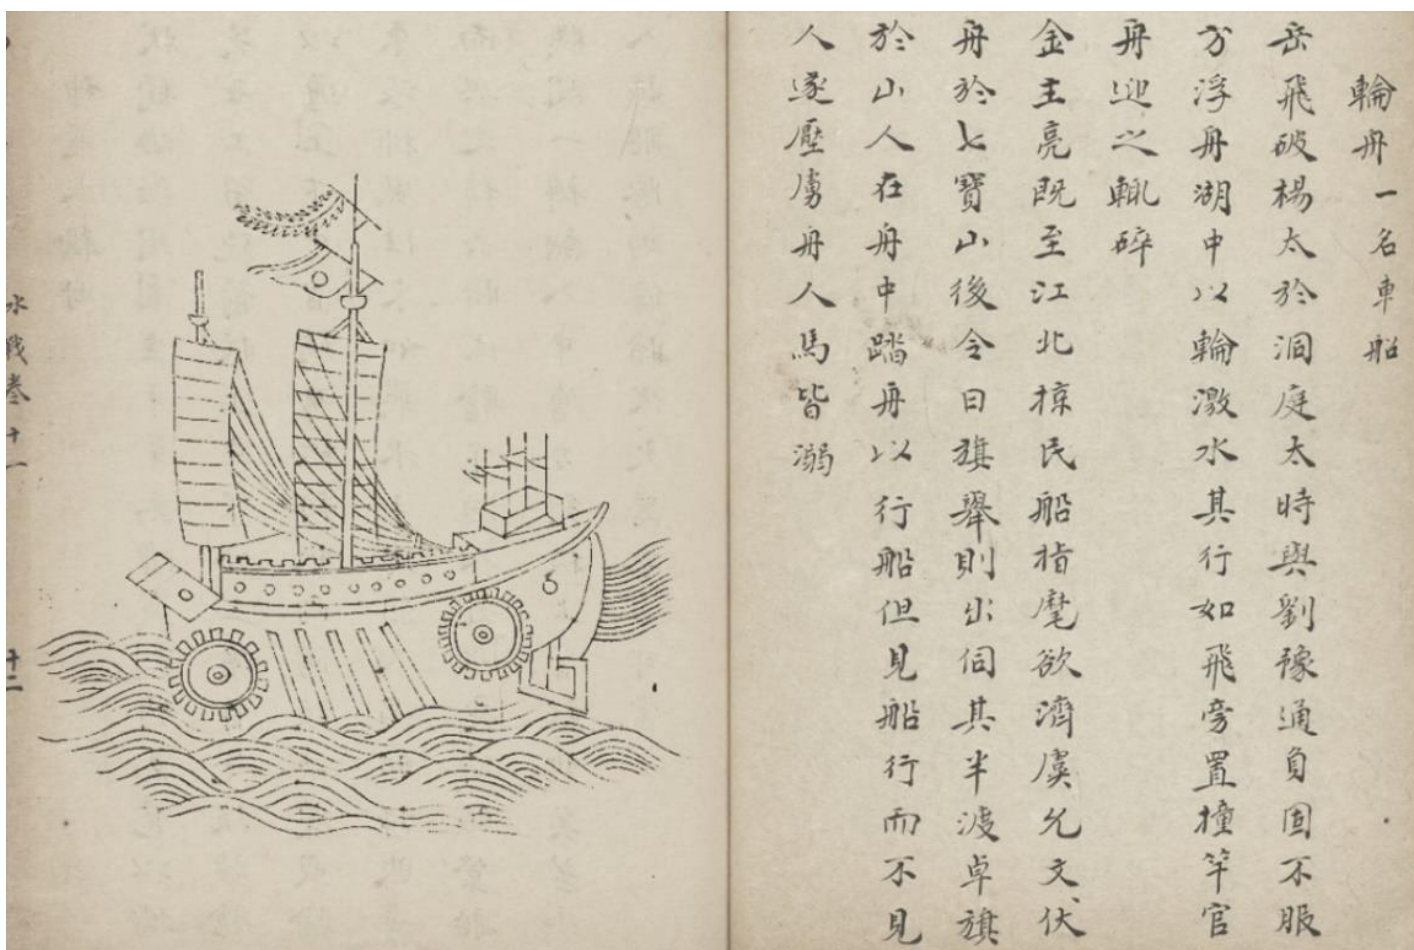 輪舟一名車船
岳飛破楊太於洞庭太時與劉豫通負固不服
方浮舟湖中以輪激水其行如飛旁置撞竿官
舟迎之輒碎
金主亮既至江北掠民船指麾欲濟虞允文伏
舟於七寶山後令曰旗舉則出伺其半渡卓旗
於山人在舟中踏舟以行船但見船行而不見
人遂壓虜舟人馬皆溺
水戰卷十一
十二